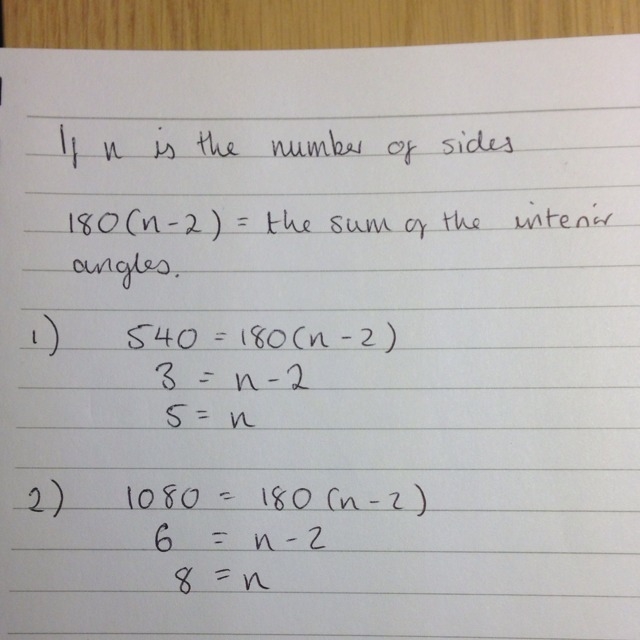 If n is the number of sides
180(n-2) = the sum of the interior
angles.
1) 540 = 180(n-2)
3 = n-2
5 = n
2) 1080 = 180(n-2)
6 = n-2
8 = n